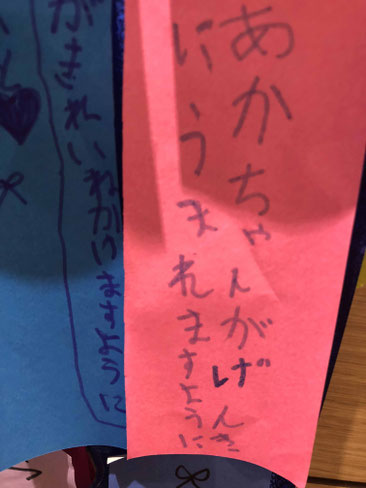 あかちゃんがげんき
にうまれますように
がきれいねがいますように